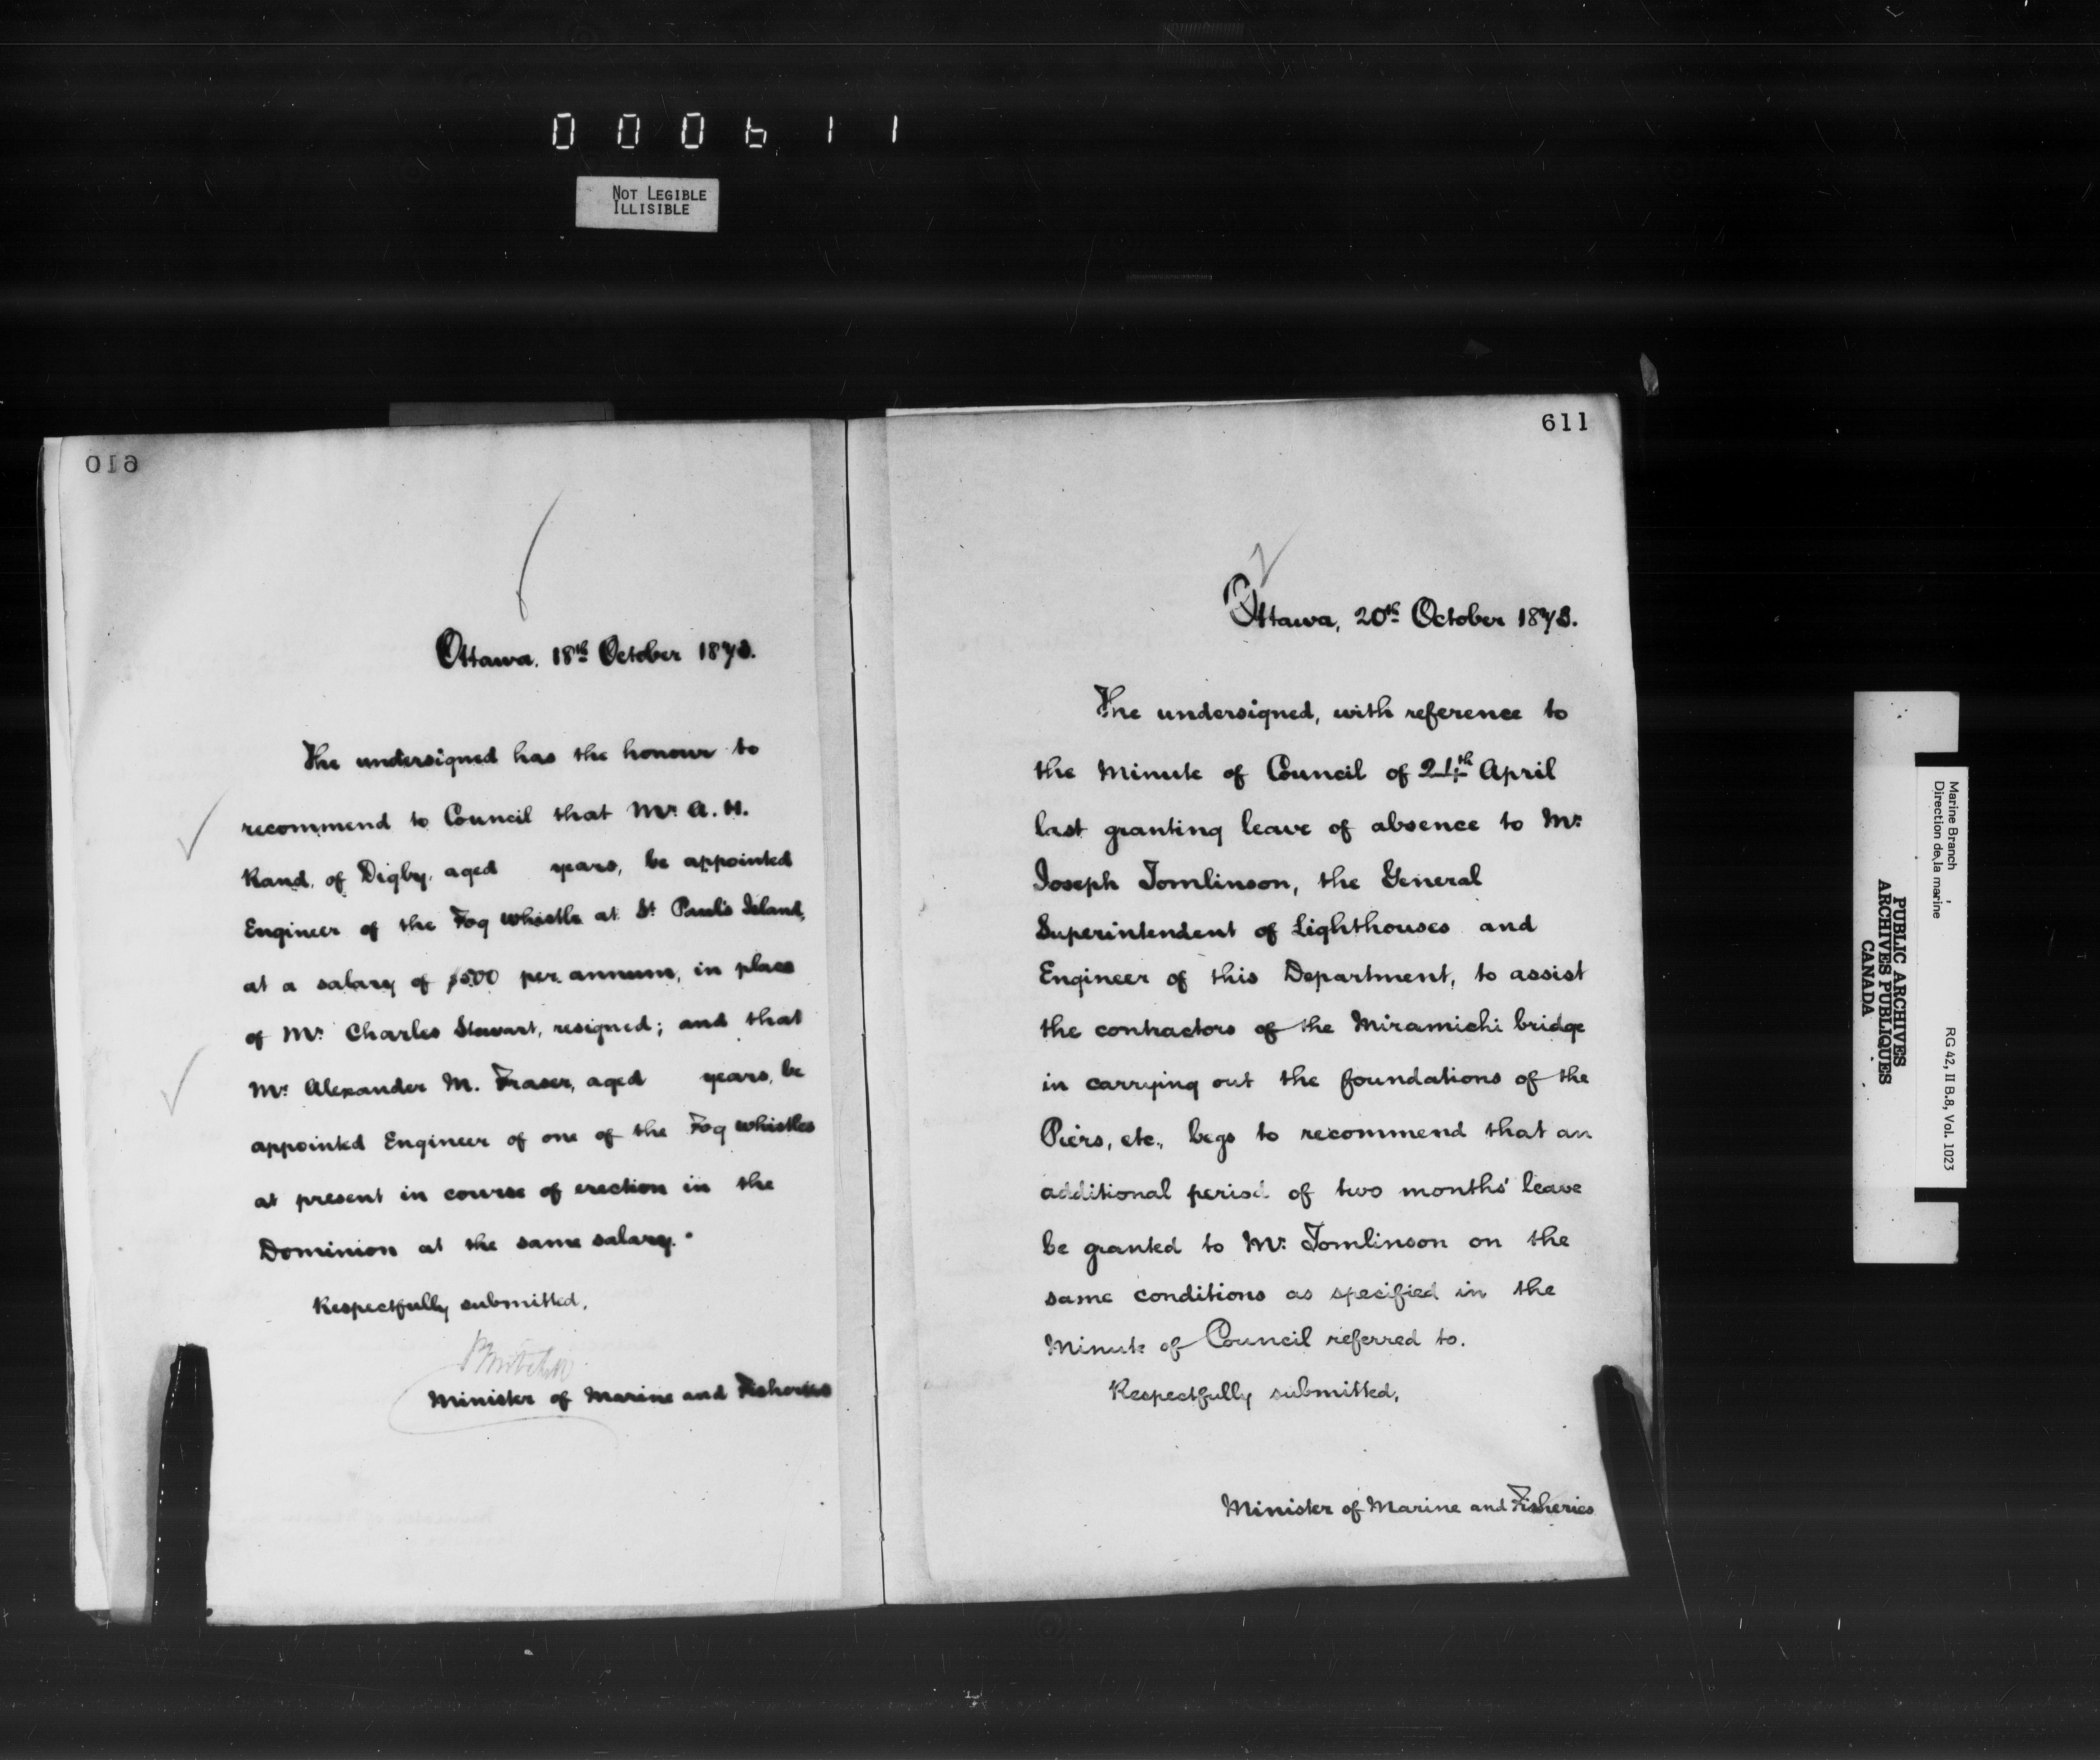 000611
NOT LEGIBLE
ILLISIBLE
610
Ottawa. 18th October 1873.
The undersigned has the honour to
recommend to Council that Mr. A. H.
Rand, of Digby, aged years, be appointed
Engineer of the Fog whistle at St Paul's Island,
at a salary of $500 per annum, in place
of Mr. Charles Stewart, resigned; and that
Mr. Alexander M. Fraser, aged years, be
appointed Engineer of one of the Fog whistles
at present in course of erection in the
Dominion at the same salary.
Respectfully submitted,
P Mitchell
Minister of Marine and Fisheries
611
Ottawa, 20th October 1873.
The undersigned, with reference to
the Minute of Council of 24th April
last granting leave of absence to Mr.
Joseph Tomlinson, the General
Superintendent of Lighthouses and
Engineer of this Department, to assist
the contractors of the Miramichi bridge
in carrying out the foundations of the
Piers, etc., begs to recommend that an
additional period of two months' leave
be granted to Mr. Tomlinson on the
same conditions as specified in the
Minute of Council referred to.
Respectfully submitted,
Minister of Marine and Fisheries
Marine Branch
Direction de la marine
RG 42, II B.8, Vol. 1023
PUBLIC ARCHIVES
ARCHIVES PUBLIQUES
CANADA